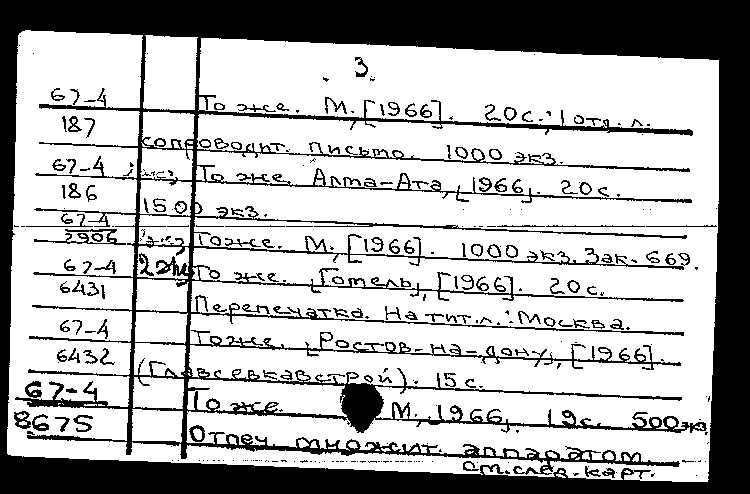 3.
67-4 То же. М., [1966]. 20 с.; 1 отд. л.
187 сопроводит. письмо. 1000 экз.
67-4 То же. Алма-Ата, [1966]. 20 с.
186 1500 экз.
67-4
2906 То же. М., [1966]. 1000 экз. Зак. 669.
67-4 То же. [Гомель], [1966]. 20 с.
6431 Перепечатка. На тит. л.: Москва.
67-4 То же. [Ростов-на-Дону], [1966].
6432 (Главсевкавстрой). 15 с.
67-4 То же. М., 1966. 19 с. 500 экз
8675 Отпеч. множит. аппаратом.
см. след. карт.